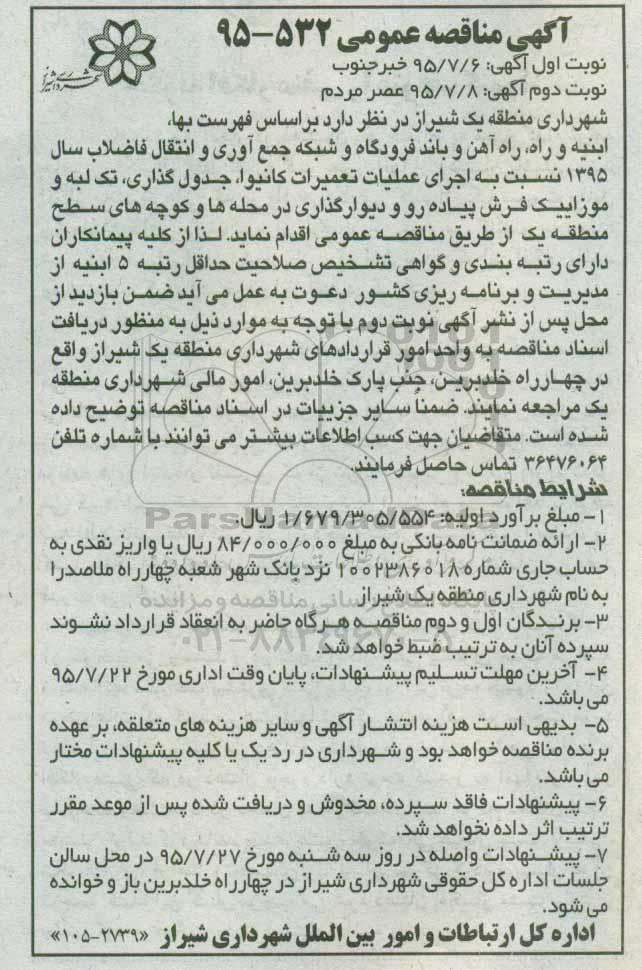 آگهی مناقصه عمومی ۵۳۲-۹۵
شهرداری شیراز
نوبت اول آگهی: ۹۵/۷/۶ خبرجنوب
نوبت دوم آگهی: ۹۵/۷/۸ عصر مردم
شهرداری منطقه یک شیراز در نظر دارد براساس فهرست بها،
ابنیه و راه، راه آهن و باند فرودگاه و شبکه جمع آوری و انتقال فاضلاب سال
۱۳۹۵ نسبت به اجرای عملیات تعمیرات کانیوا، جدول گذاری، تک لبه و
موزاییک فرش پیاده رو و دیوارگذاری در محله ها و کوچه های سطح
منطقه یک از طریق مناقصه عمومی اقدام نماید. لذا از کلیه پیمانکاران
دارای رتبه بندی و گواهی تشخیص صلاحیت حداقل رتبه ۵ ابنیه از
مدیریت و برنامه ریزی کشور دعوت به عمل می آید ضمن بازدید از
محل پس از نشر آگهی نوبت دوم با توجه به موارد ذیل به منظور دریافت
اسناد مناقصه به واحد امور قراردادهای شهرداری منطقه یک شیراز واقع
در چهارراه خلدبرین، جنب پارک خلدبرین، امور مالی شهرداری منطقه
یک مراجعه نمایند. ضمناً سایر جزییات در اسناد مناقصه توضیح داده
شده است. متقاضیان جهت کسب اطلاعات بیشتر می توانند با شماره تلفن
۳۶۴۷۶۰۶۴ تماس حاصل فرمایند.
شرایط مناقصه:
۱- مبلغ برآورد اولیه: ۱/۶۷۹/۳۰۵/۵۵۴ ریال.
۲- ارائه ضمانت نامه بانکی به مبلغ ۸۴/۰۰۰/۰۰۰ ریال یا واریز نقدی به
حساب جاری شماره ۱۰۰۲۳۸۶۰۱۸ نزد بانک شهر شعبه چهارراه ملاصدرا
به نام شهرداری منطقه یک شیراز
۳- برندگان اوّل و دوم مناقصه هرگاه حاضر به انعقاد قرارداد نشوند
سپرده آنان به ترتیب ضبط خواهد شد.
۴- آخرین مهلت تسلیم پیشنهادات، پایان وقت اداری مورخ ۹۵/۷/۲۲
می باشد.
۵- بدیهی است هزینه انتشار آگهی و سایر هزینه های متعلقه، بر عهده
برنده مناقصه خواهد بود و شهرداری در رد یک یا کلیه پیشنهادات مختار
می باشد.
۶- پیشنهادات فاقد سپرده، مخدوش و دریافت شده پس از موعد مقرر
ترتیب اثر داده نخواهد شد.
۷- پیشنهادات واصله در روز سه شنبه مورخ ۹۵/۷/۲۷ در محل سالن
جلسات اداره کل حقوقی شهرداری شیراز در چهارراه خلدبرین باز و خوانده
می شود.
اداره کل ارتباطات و امور بین الملل شهرداری شیراز «۲۷۳۹-۱۰۵»
ParsNamadData